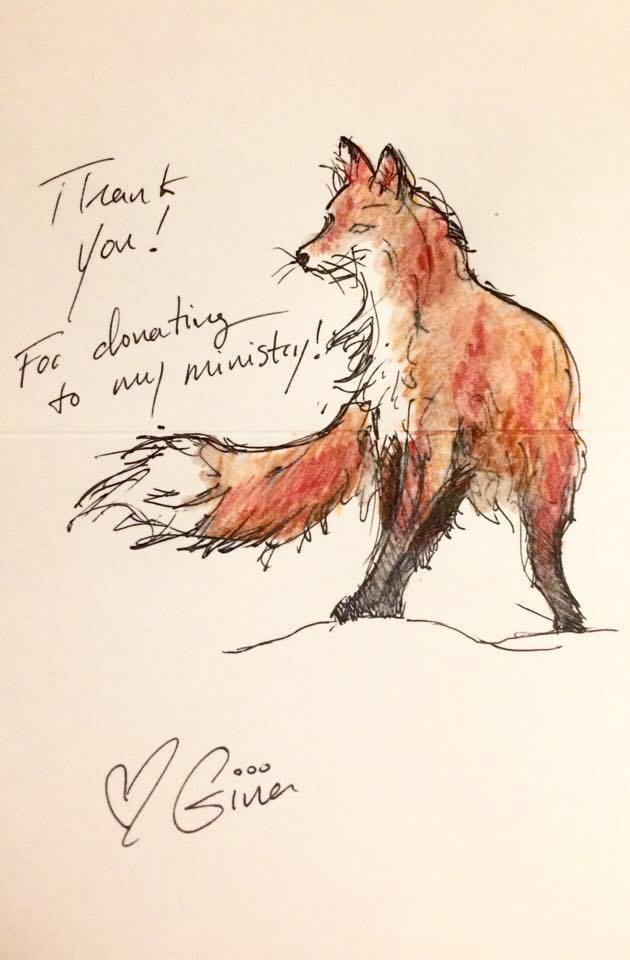 Thank
you!
For donating
to my ministry!
♡ Gina